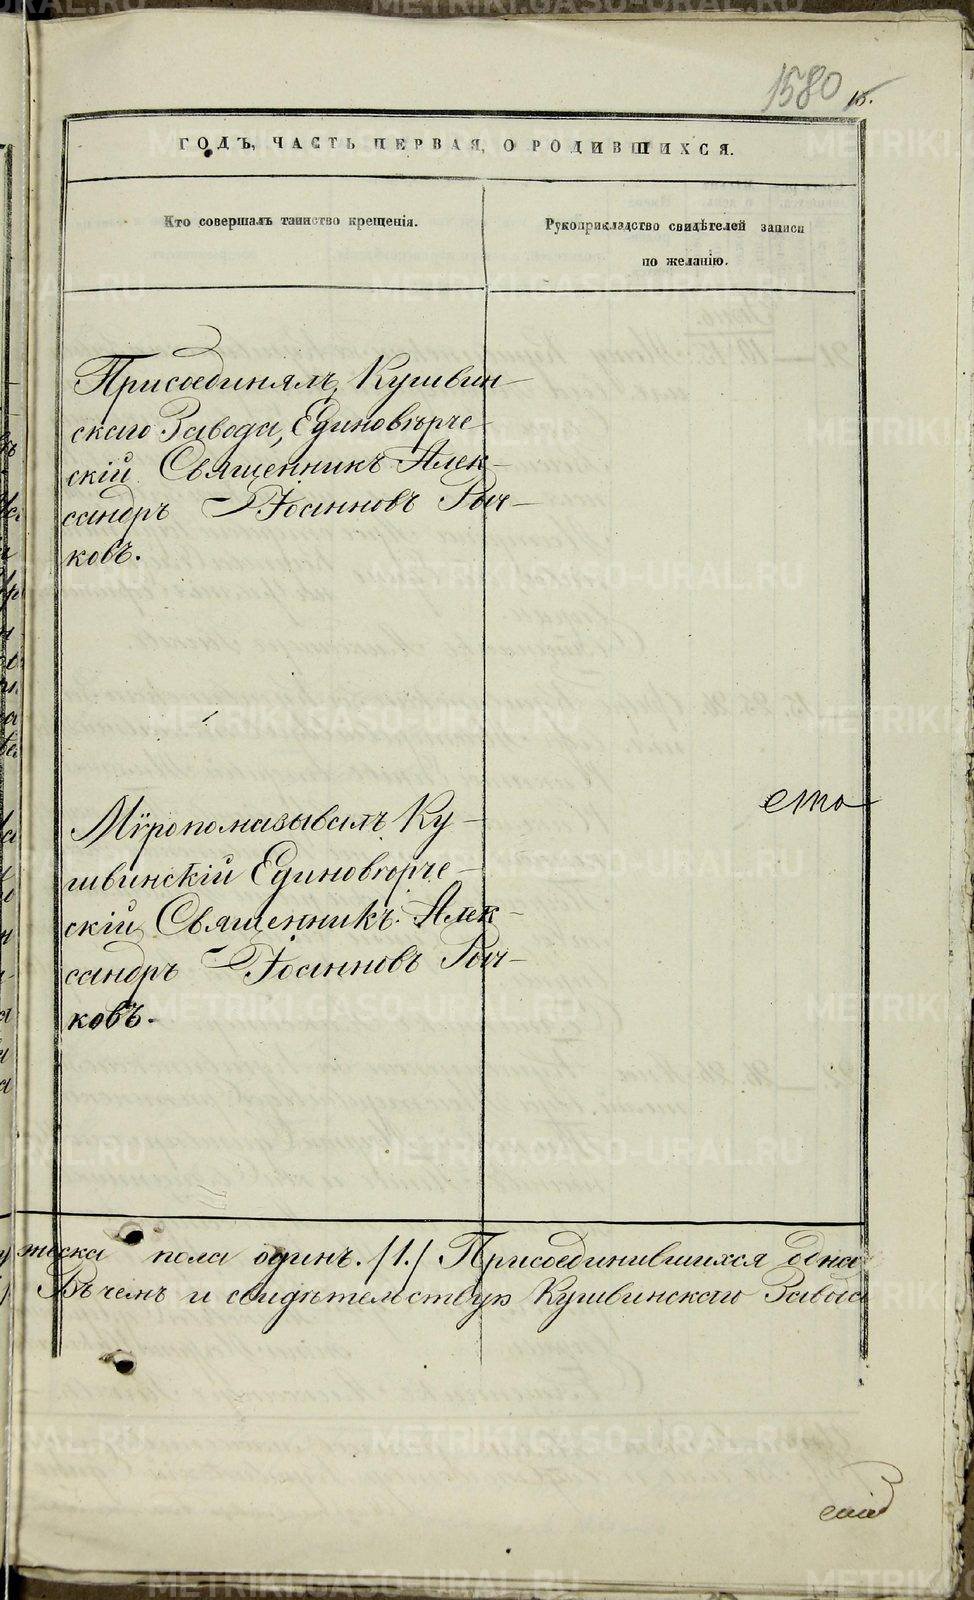 1580
15.
ГОДЪ, ЧАСТЬ ПЕРВАЯ, О РОДИВШИХСЯ.
Кто совершалъ таинство крещенія.
Рукоприкладство свидѣтелей записи
по желанію.
Присоединялъ, Кушвин-
скаго Завода, Единовѣрче-
скій Священникъ Алек-
сандръ Іоанновъ Рыч-
ковъ.
ето
Мѵропомазывалъ Ку-
швинскій Единовѣрче-
скій Священникъ Алек-
сандръ Іоанновъ Рыч-
ковъ.
жеска пола одинъ. /1./ Присоединившихся одна
Въ чемъ и свидѣтельствую Кушвинскаго Завода
METRIKI.GASO-URAL.RU